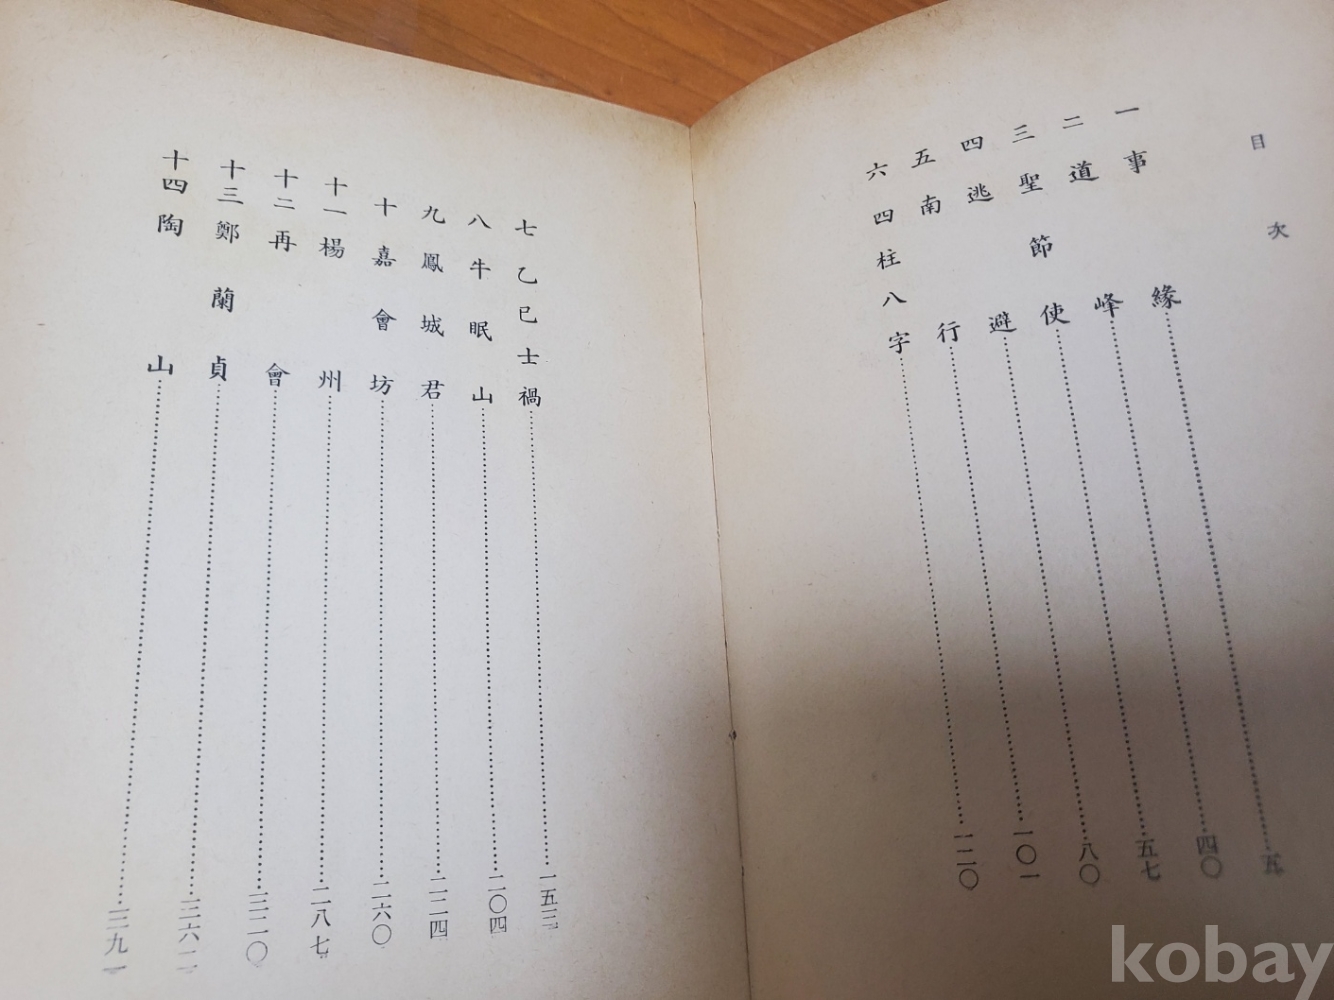 目次
一 事緣……五
二 道峰……四〇
三 聖節使……五七
四 逃避……八〇
五 南行……一〇一
六 四柱八字……一二〇
七 乙巳士禍……一五三
八 牛眠山……二〇四
九 鳳城君……二二四
十 嘉會坊……二六〇
十一 楊州……二八七
十二 再會……三二〇
十三 鄭蘭貞……三六二
十四 陶山……三九一
kobay